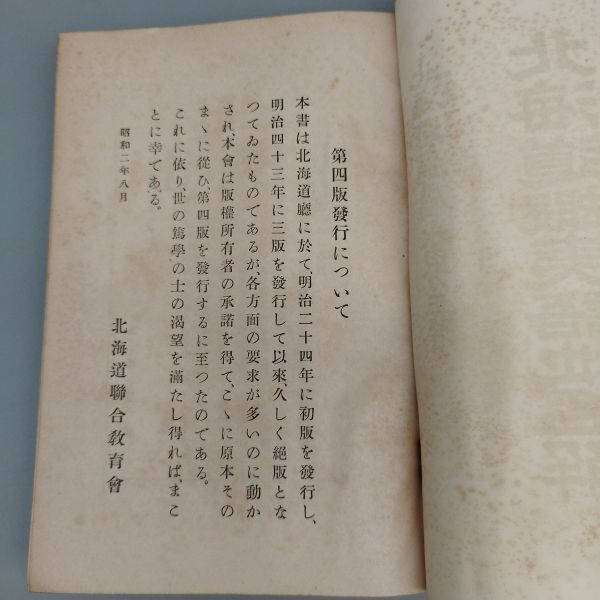 第四版發行について
本書は北海道廳に於て、明治二十四年に初版を發行し、
明治四十三年に三版を發行して以來、久しく絕版とな
つてゐたものであるが、各方面の要求が多いのに動か
され、本會は版權所有者の承諾を得て、こゝに原本その
まゝに從ひ、第四版を發行するに至つたのである。
これに依り、世の篤學の士の渴望を滿たし得れば、まこ
とに幸である。
昭和二年八月
北海道聯合敎育會